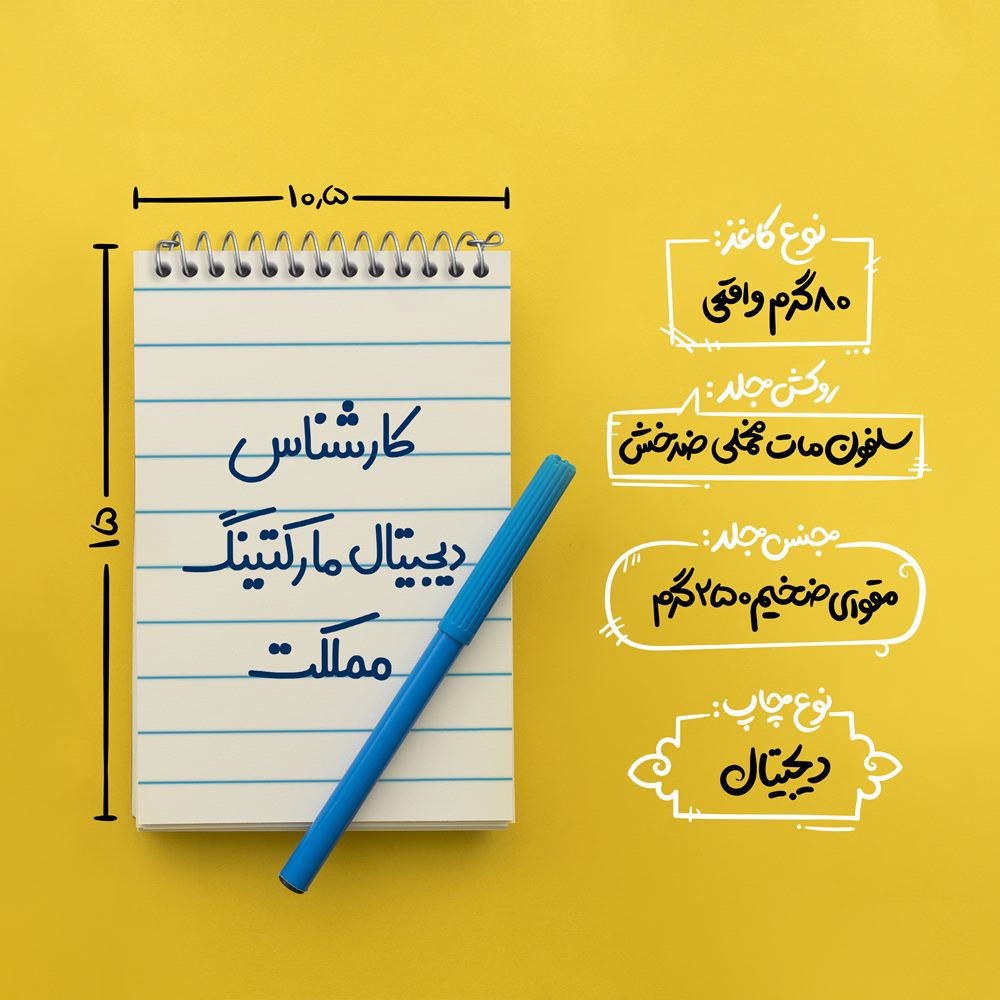 ۱۰٫۵
۱۵
کارشناس
دیجیتال مارکتینگ
مملکت
نوع کاغذ:
۸۰ گرم واقعی
روکش جلد:
سلفون مات مخملی ضدخش
جنس جلد:
مقوای ضخیم ۲۵۰ گرم
نوع چاپ:
دیجیتال